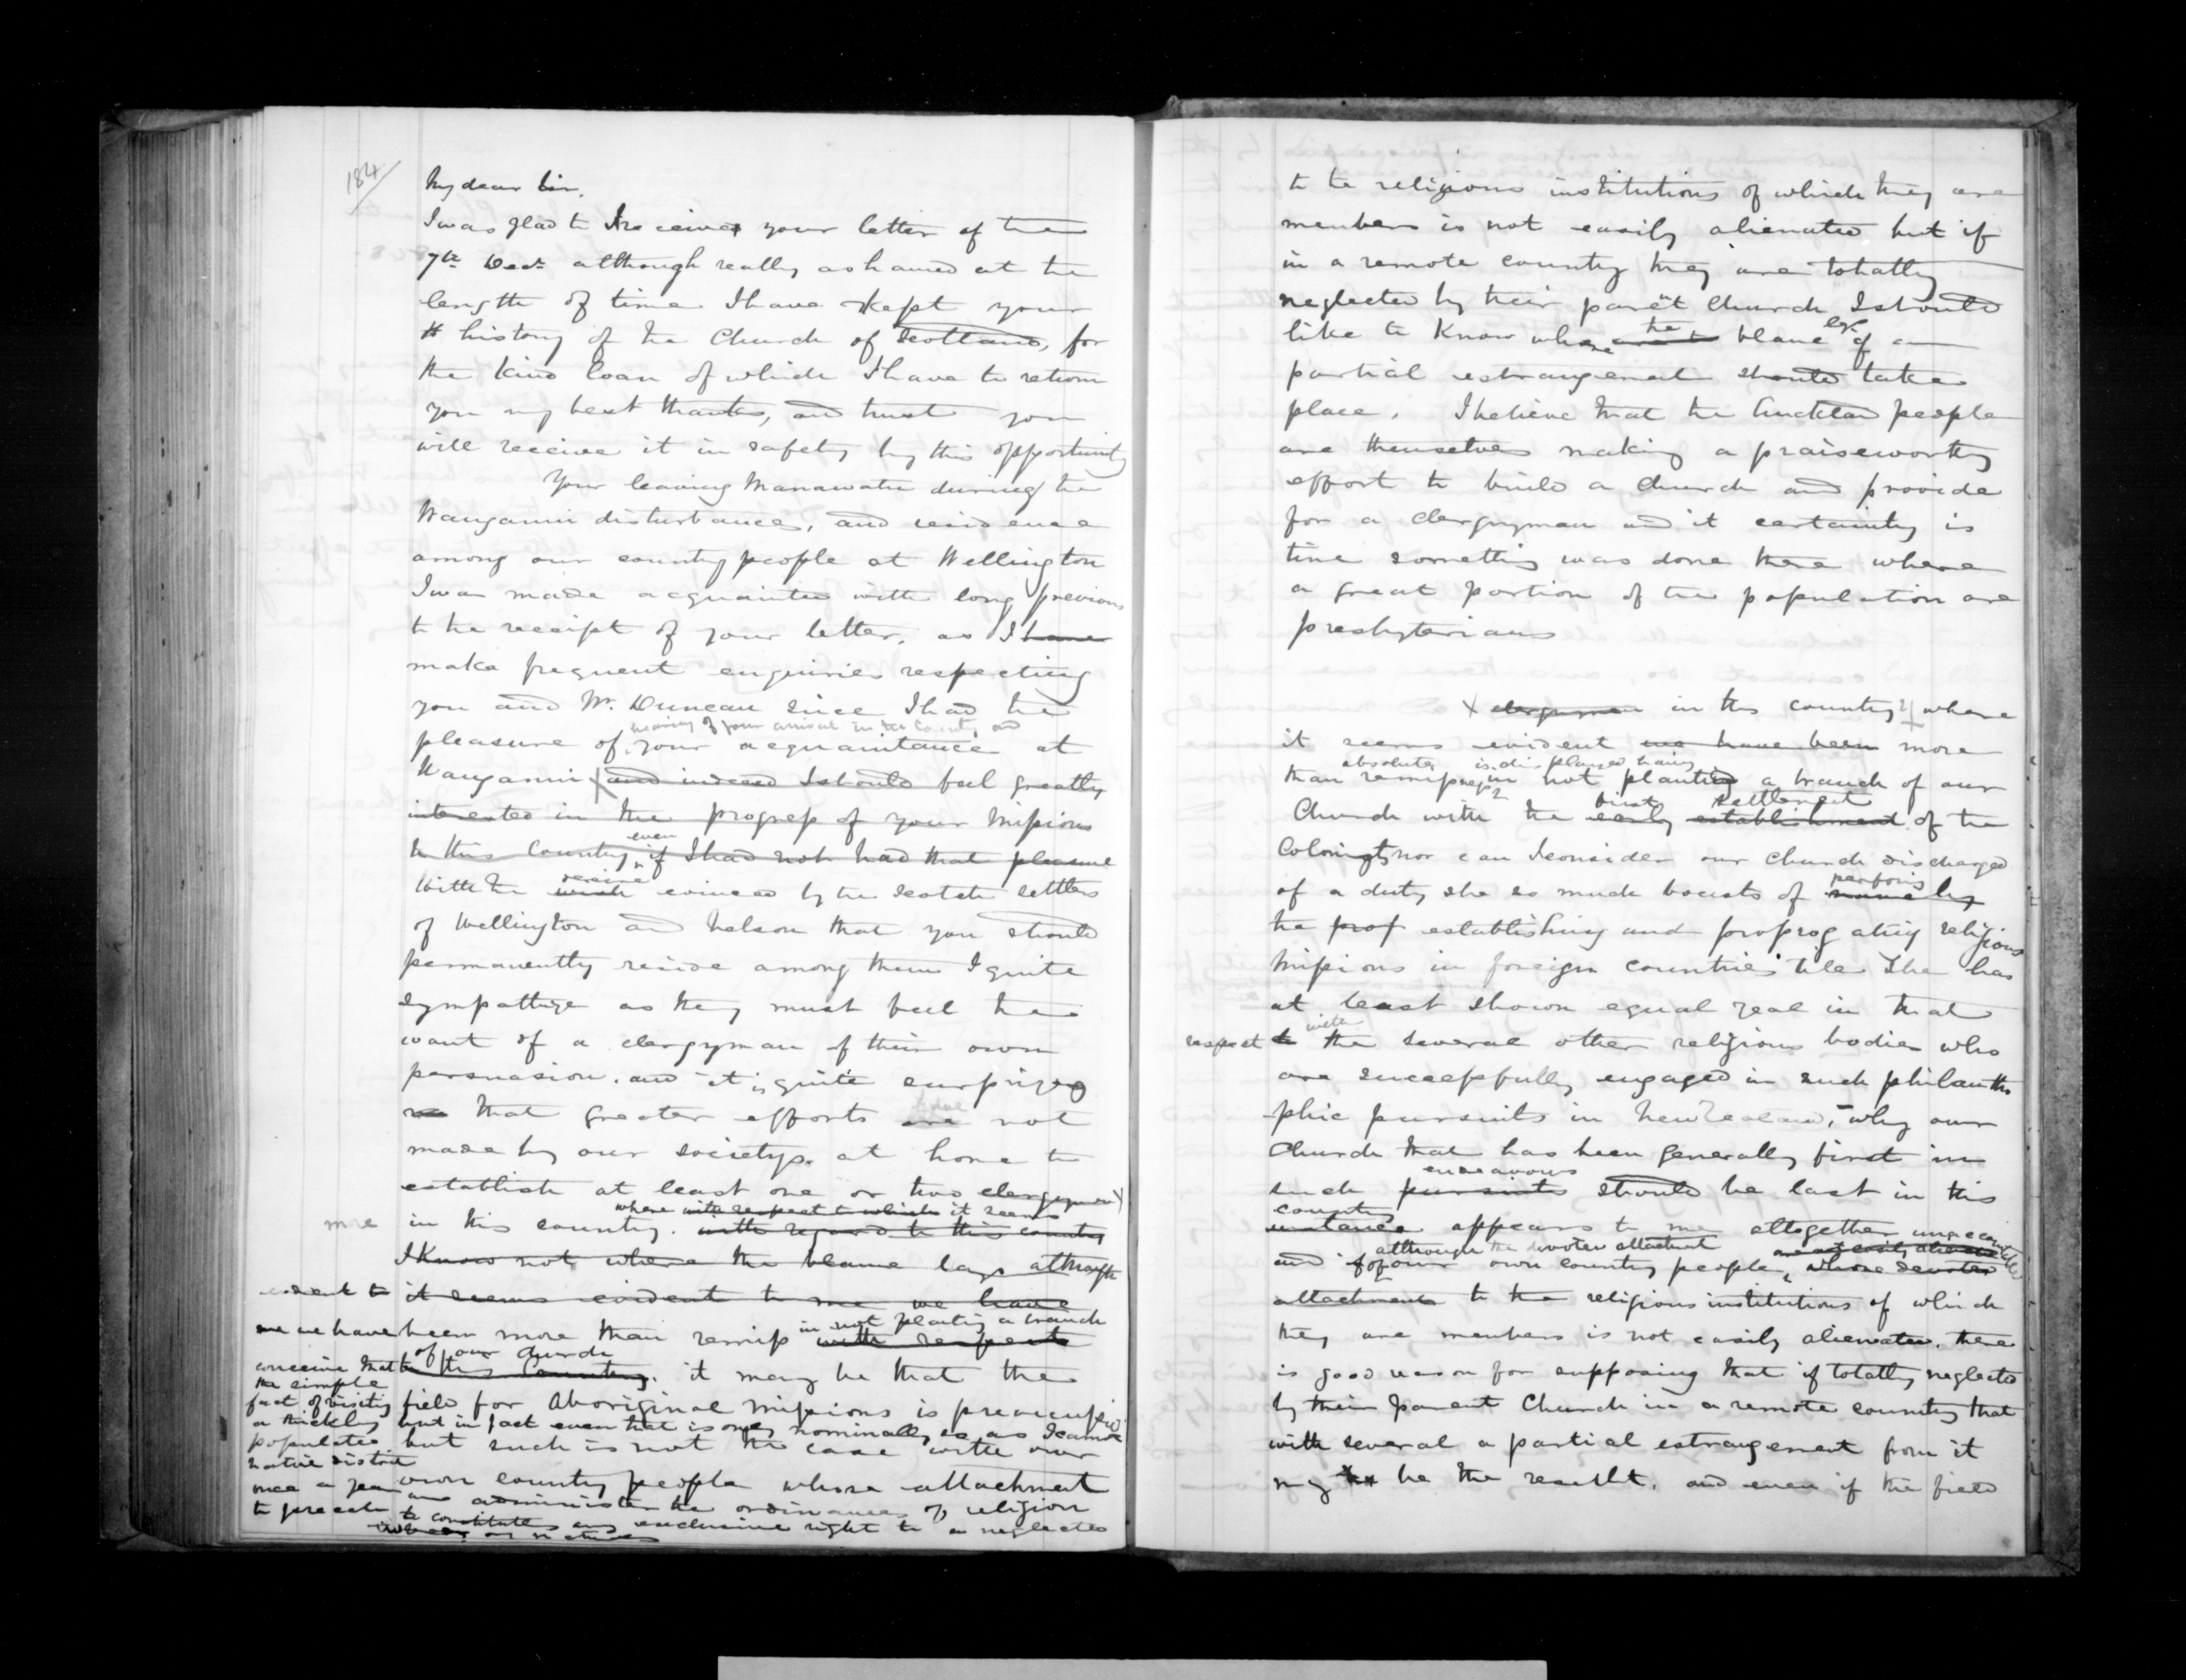 184/
My dear Sir,
I was glad to receive your letter of the
7th Decr although really ashamed at the
length of time I have kept your
history of the Church of Scotland, for
the kind loan of which I have to return
you my best thanks, and trust you
will receive it in safety by this opportunity
Your leaving Manawatu during the
Wanganui disturbances, and residence
among our country people at Wellington
I was made acquainted with long previous
to the receipt of your letter, as I have
make frequent enquiries respecting
you and Mr. Duncan since I had the
hearing of your arrival in the County, and
pleasure of your acquaintance at
Wanganui X and indeed I should feel greatly
interested in the progress of your Missions
even
to this Country if I had not had that pleasure
desire
With the wish evinced by the Scotch settlers
of Wellington and Nelson that you should
permanently reside among them I quite
sympathize as they must feel the
want of a clergyman of their own
persuasion. and it is quite surprizing
have
that greater efforts are not
made by our societys at home to
establish at least one or two clergymen X
where with respect to which it seems
more in this country. with regard to this country
I know not where the blame lays although
evident to it seems evident to me we have
in not planting a branch
me we have been more than remiss with respect
of our church
to this Country. it may be that the
conceive that
the simple
fact of visiting
a thickly
populated
native district
once a year
to preach
field for Aboriginal Missions is preoccupied
but in fact even that is only nominally so as I cannot
but such is not the case with our
own country people whose attachment
and administer the ordinances of religion
to constitute any exclusive right to a neglected
to the religious institutions of which they are
members is not easily alienated but if
in a remote country they are totally
neglected by their parent Church I should
the lye
like to know where blame of a
partial estrangement should take
place. I believe that the Auckland people
are themselves making a praiseworthy
effort to build a Church and provide
for a clergyman and it certainly is
time something was done there where
a great portion of the population are
presbyterians
X clergymen in this country where
it seems evident we have been more
absolute is displayed having
than remissness in not planting a branch of our
first settlement
Church with the early establishment of the
Colony nor can I consider our church discharged
performing
of a duty she so much boasts of namely
the prof establishing and proprogating religious
Missions in foreign countries till She has
at least shown equal zeal in that
with
respect to the several other religious bodies who
are successfully engaged in such philanthro
phic pursuits in New Zealand, why our
Church that has been generally first in
endeavours
such pursuits should be last in this
country
instance appears to me altogether unaccountable
although the devoted attachment are not easily alienated
and if of our own country people, whose devoted
attachment to the religious institutions of which
they are members is not easily alienated. there
is good reason for supposing that if totally neglected
by their parent Church in a remote country that
with several a partial estrangement from it
may be the result. and even if the field